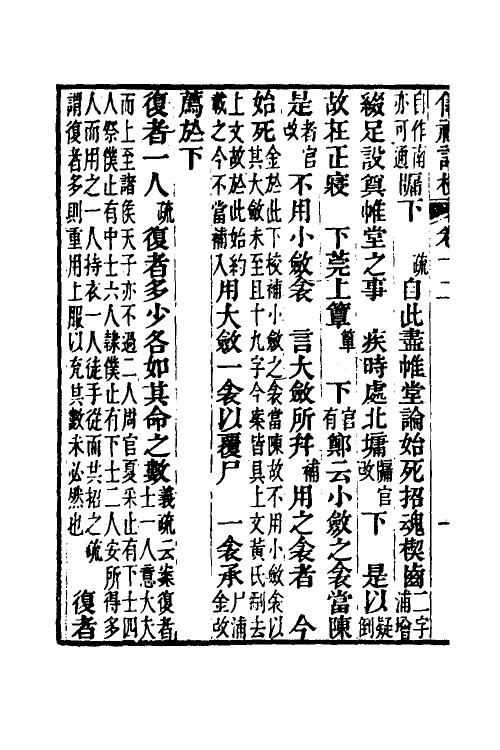 自作南牖亦可通牖下　疏自此盡帷堂論始死招魂楔齒二字浦增
綴足設奠帷堂之事　疾時處北墉牖官改下　是以疑倒
故在正寢　下莞上簟簟　下官有鄭云小斂之衾當陳
是者官改不用小斂衾　言大斂所幷補用之衾者　今
始死金於此下校補小斂之衾當陳故不用小斂衾以其大斂未至且十九字今案皆具上文黃氏刪去
上文故於此始約載之今不當補入用大斂一衾以覆尸　一衾承尸浦金改
薦於下
復者一人疏復者多少各如其命之數義疏云案復者士一人意大夫
而上至諸侯天子亦不過二人周官夏采止有下士四人祭僕止有中士六人隸僕止有下士二人安所得多
人而用之一人持衣一人徒手從而共招之疏謂復者多則重用上服以充其數未必然也　復者